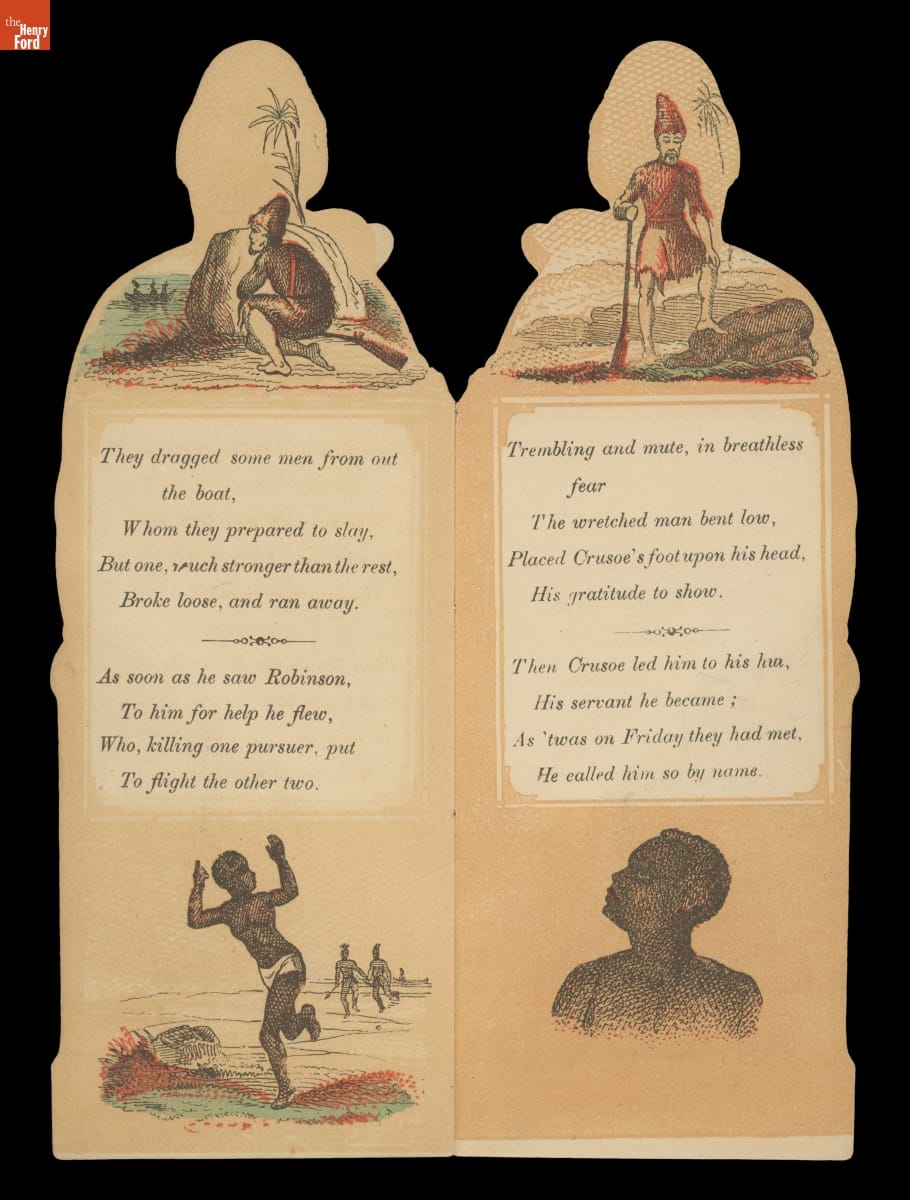 the
Henry
Ford
They dragged some men from out
the boat,
Whom they prepared to slay,
But one, much stronger than the rest,
Broke loose, and ran away.
As soon as he saw Robinson,
To him for help he flew,
Who, killing one pursuer, put
To flight the other two.
Trembling and mute, in breathless
fear
The wretched man bent low,
Placed Crusoe's foot upon his head,
His gratitude to show.
Then Crusoe led him to his hut,
His servant he became;
As 'twas on Friday they had met,
He called him so by name.